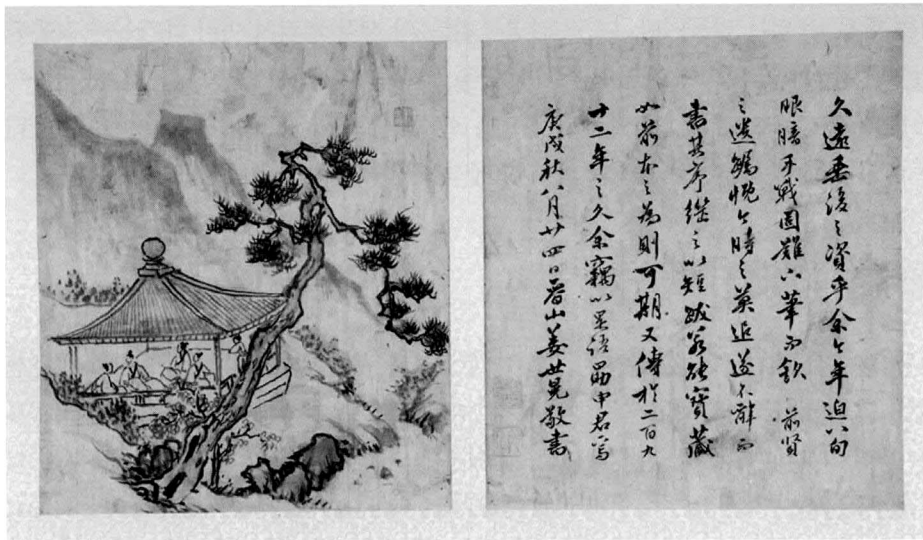 久遠垂後之資乎余今年迫八旬
眼暗手戰固難下筆而欽 前賢
之遺躅慨今時之莫追遂不辭而
書其序繼之以短跋若能寶藏
如前本之爲則可期又傳於二百九
十二年之久余竊以是語勗申君焉
庚戌秋八月廿四日晉山姜世晃敬書